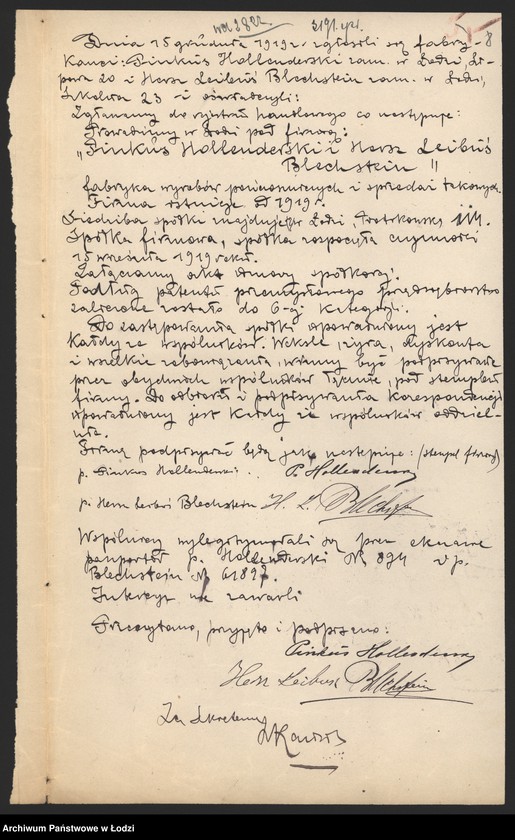 8
Dnia 15 grudnia 1919 r. zgłosili się fabry-
kanci: Pinkus Hollenderski zam. w Łodzi, Li-
powa 20 i Hersz Leibuś Blechstein zam. w Łodzi,
Szkolna 23 i oświadczyli:
Zgłaszamy do rejestru handlowego co następuje:
Prowadzimy w Łodzi pod firmą:
"Pinkus Hollenderski i Hersz Leibuś
Blechstein"
fabryka wyrobów pończoszniczych i sprzedaż takowych.
Firma istnieje od 1919 r.
Siedziba spółki znajduje się Łódź, Piotrkowska
Spółka firmowa, spółka rozpoczęła czynności
15 września 1919 roku.
Załączamy akt umowy spółkowej.
Podług patentu przemysłowego przedsiębiorstwo
zaliczone zostało do 6-ej kategorji.
Do zastępowania spółki upoważniony jest
każdy ze wspólników. Weksle, żyra, dyskonta
i wszelkie zobowiązania, winny być podpisywane
przez obydwuch wspólników łącznie, pod stemplem
firmy. Do odbioru i podpisywania korespondencji
upoważniony jest każdy ze wspólników oddziel-
nie.
Firmę podpisywać będą jak następuje: (stempel firmy)
p. Pinkus Hollenderski. P. Hollenderski
p. Hersz Leibuś Blechstein H. L. Blechstein
Wspólnicy wylegitymowali się przez okazanie
paszportów p. Hollenderski № 894 i p.
Blechstein №
Intercyz nie zawarli
Przeczytano, przyjęto i podpisano:
Pinkus Hollenderski
Hersz Leibus Blechstein
Za Sekretarza
Archiwum Państwowe w Łodzi